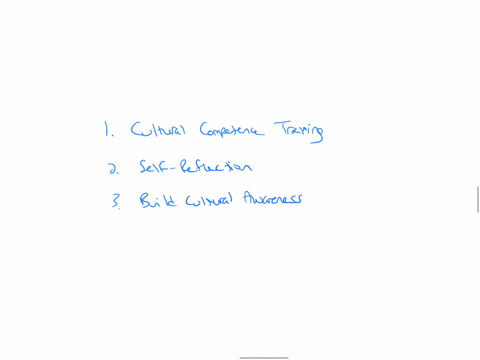 1. Cultural Competence Training
2. Self-Reflection
3. Build Cultural Awareness